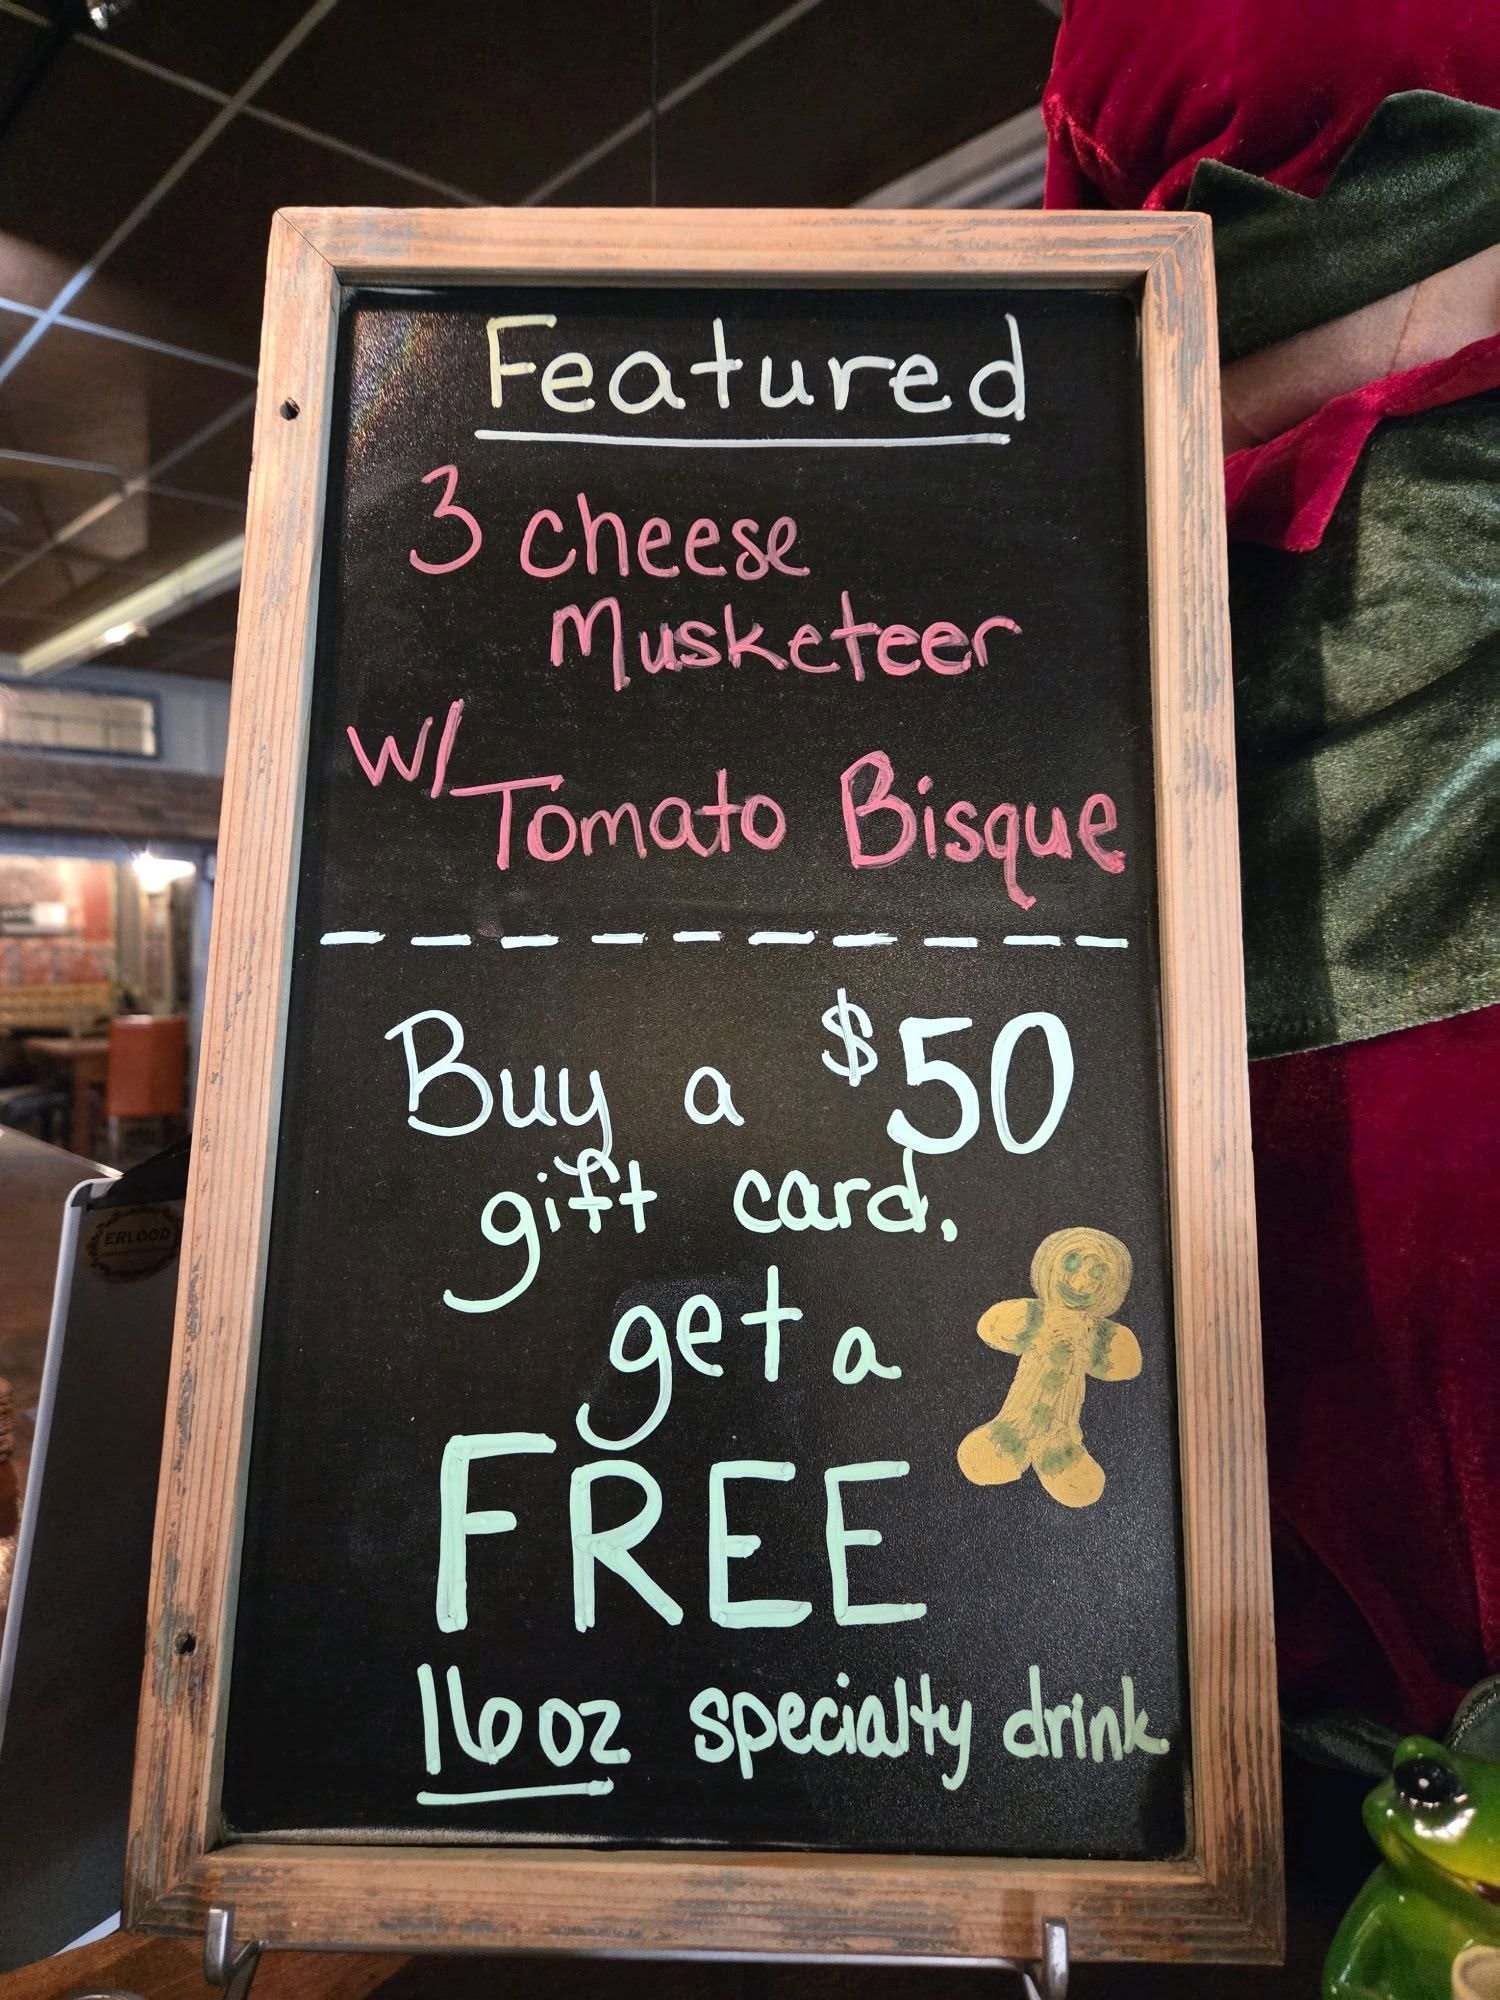 Featured
3 cheese
Musketeer
w/ Tomato Bisque
Buy a $50
gift card,
get a
FREE
16 oz specialty drink
ERLOOD